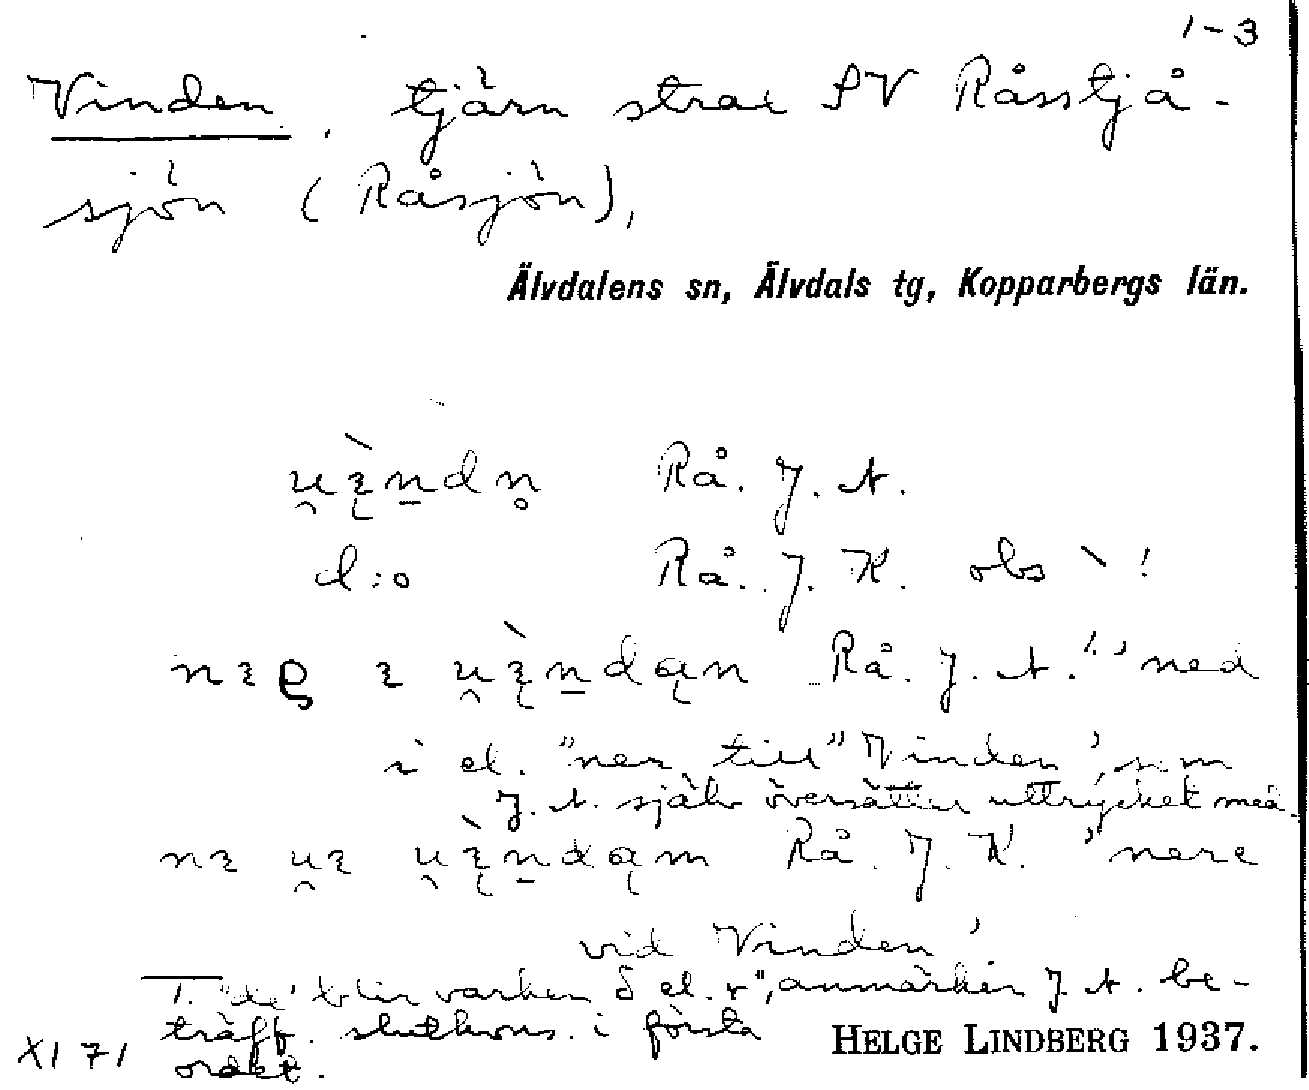 1-3
Vinden, tjärn strax SV Råsstjå-
sjön (Råsjön),
Älvdalens sn, Älvdals tg, Kopparbergs län.
Rå. J. A.
d:o Rå. J. K. obs ` !
Rå. J. A.¹ 'ned
i el. "ner till" Vinden', som
J. A. själv översätter uttrycket med.
Rå. J. K. 'nere
vid Vinden'
1. "de' blir varken δ el. r", anmärker J. A. be-
träff. slutkons. i första
ordet.
HELGE LINDBERG 1937.
XI 71